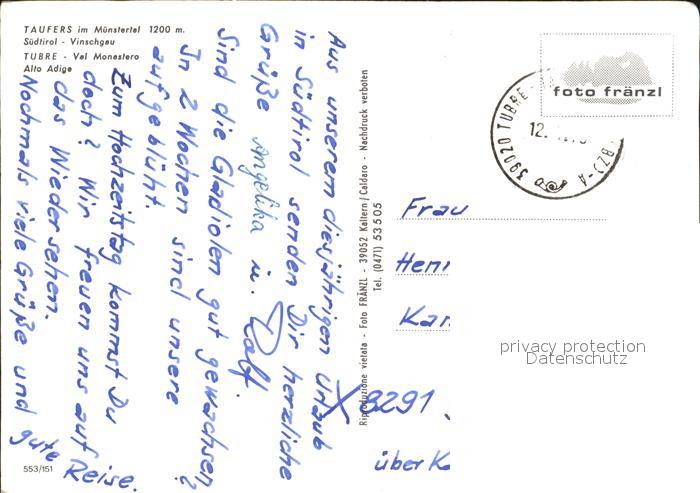 TAUFERS im Münstertal 1200 m.
Südtirol - Vinschgau
TUBRE - Val Monastero
Alto Adige
Aus unserem diesjährigen Urlaub
in Südtirol senden Dir herzliche
Grüße Angelika u. Ralf.
Sind die Gladiolen gut gewachsen?
In 2 Wochen sind unsere
aufgeblüht.
Zum Hochzeitstag kommst Du
doch? Wir freuen uns auf
das Wiedersehen.
Nochmals viele Grüße und
gute Reise.
553/151
Riproduzione vietata - Foto FRÄNZL - 39052 Kaltern/Caldaro - Nachdruck verboten
Tel. (0471) 53505
foto fränzl
39020 TUBRE
(BZ) - A
12.
Frau
Henr
Kar
X 8291
über Ko
privacy protection
Datenschutz